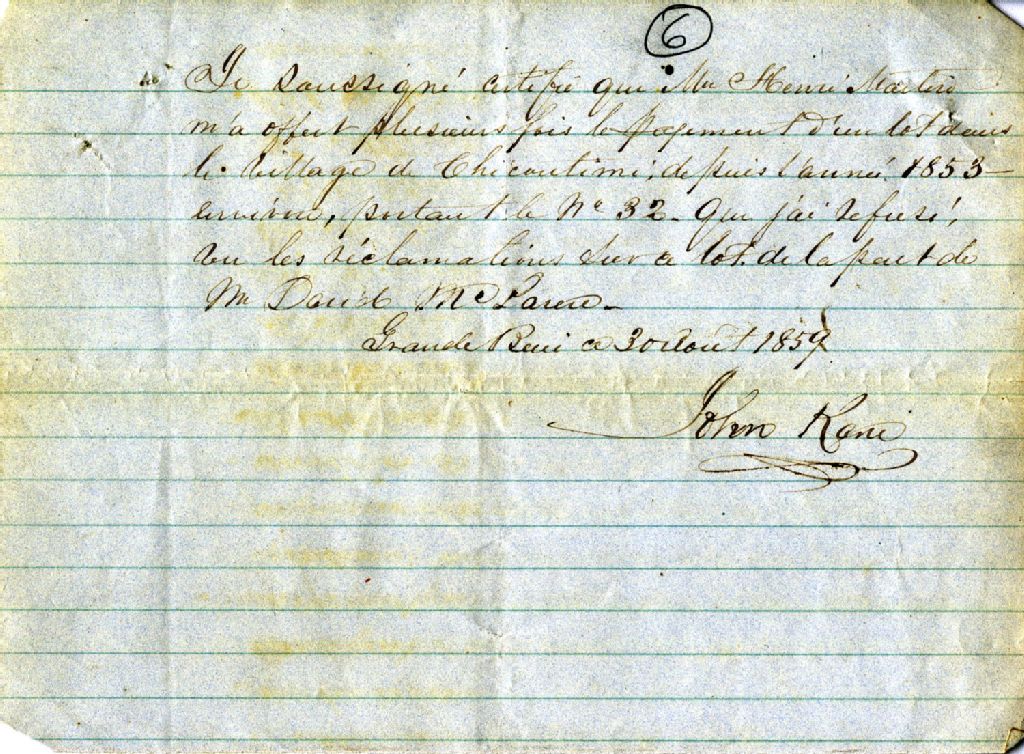 6
Je soussigné certifie que Mr Henri Martin
m'a offert plusieurs fois le payement d'un lot dans
le village de Chicoutimi, depuis l'année 1853
environ, portant le No 32. que j'ai refusé,
vu les réclamations sur ce lot de la part de
Mr David McLaren
Grande Baie ce 30 Août 1859
John Kane